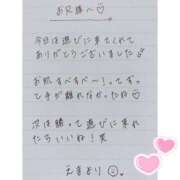 お兄様へ♡
今日は遊びに来てくれて
ありがとうございました
お肌すべすべ〜!ってず。
て手が離れなかったね♡
次は勝って遊びに来れ
たらいいね!笑
えまより